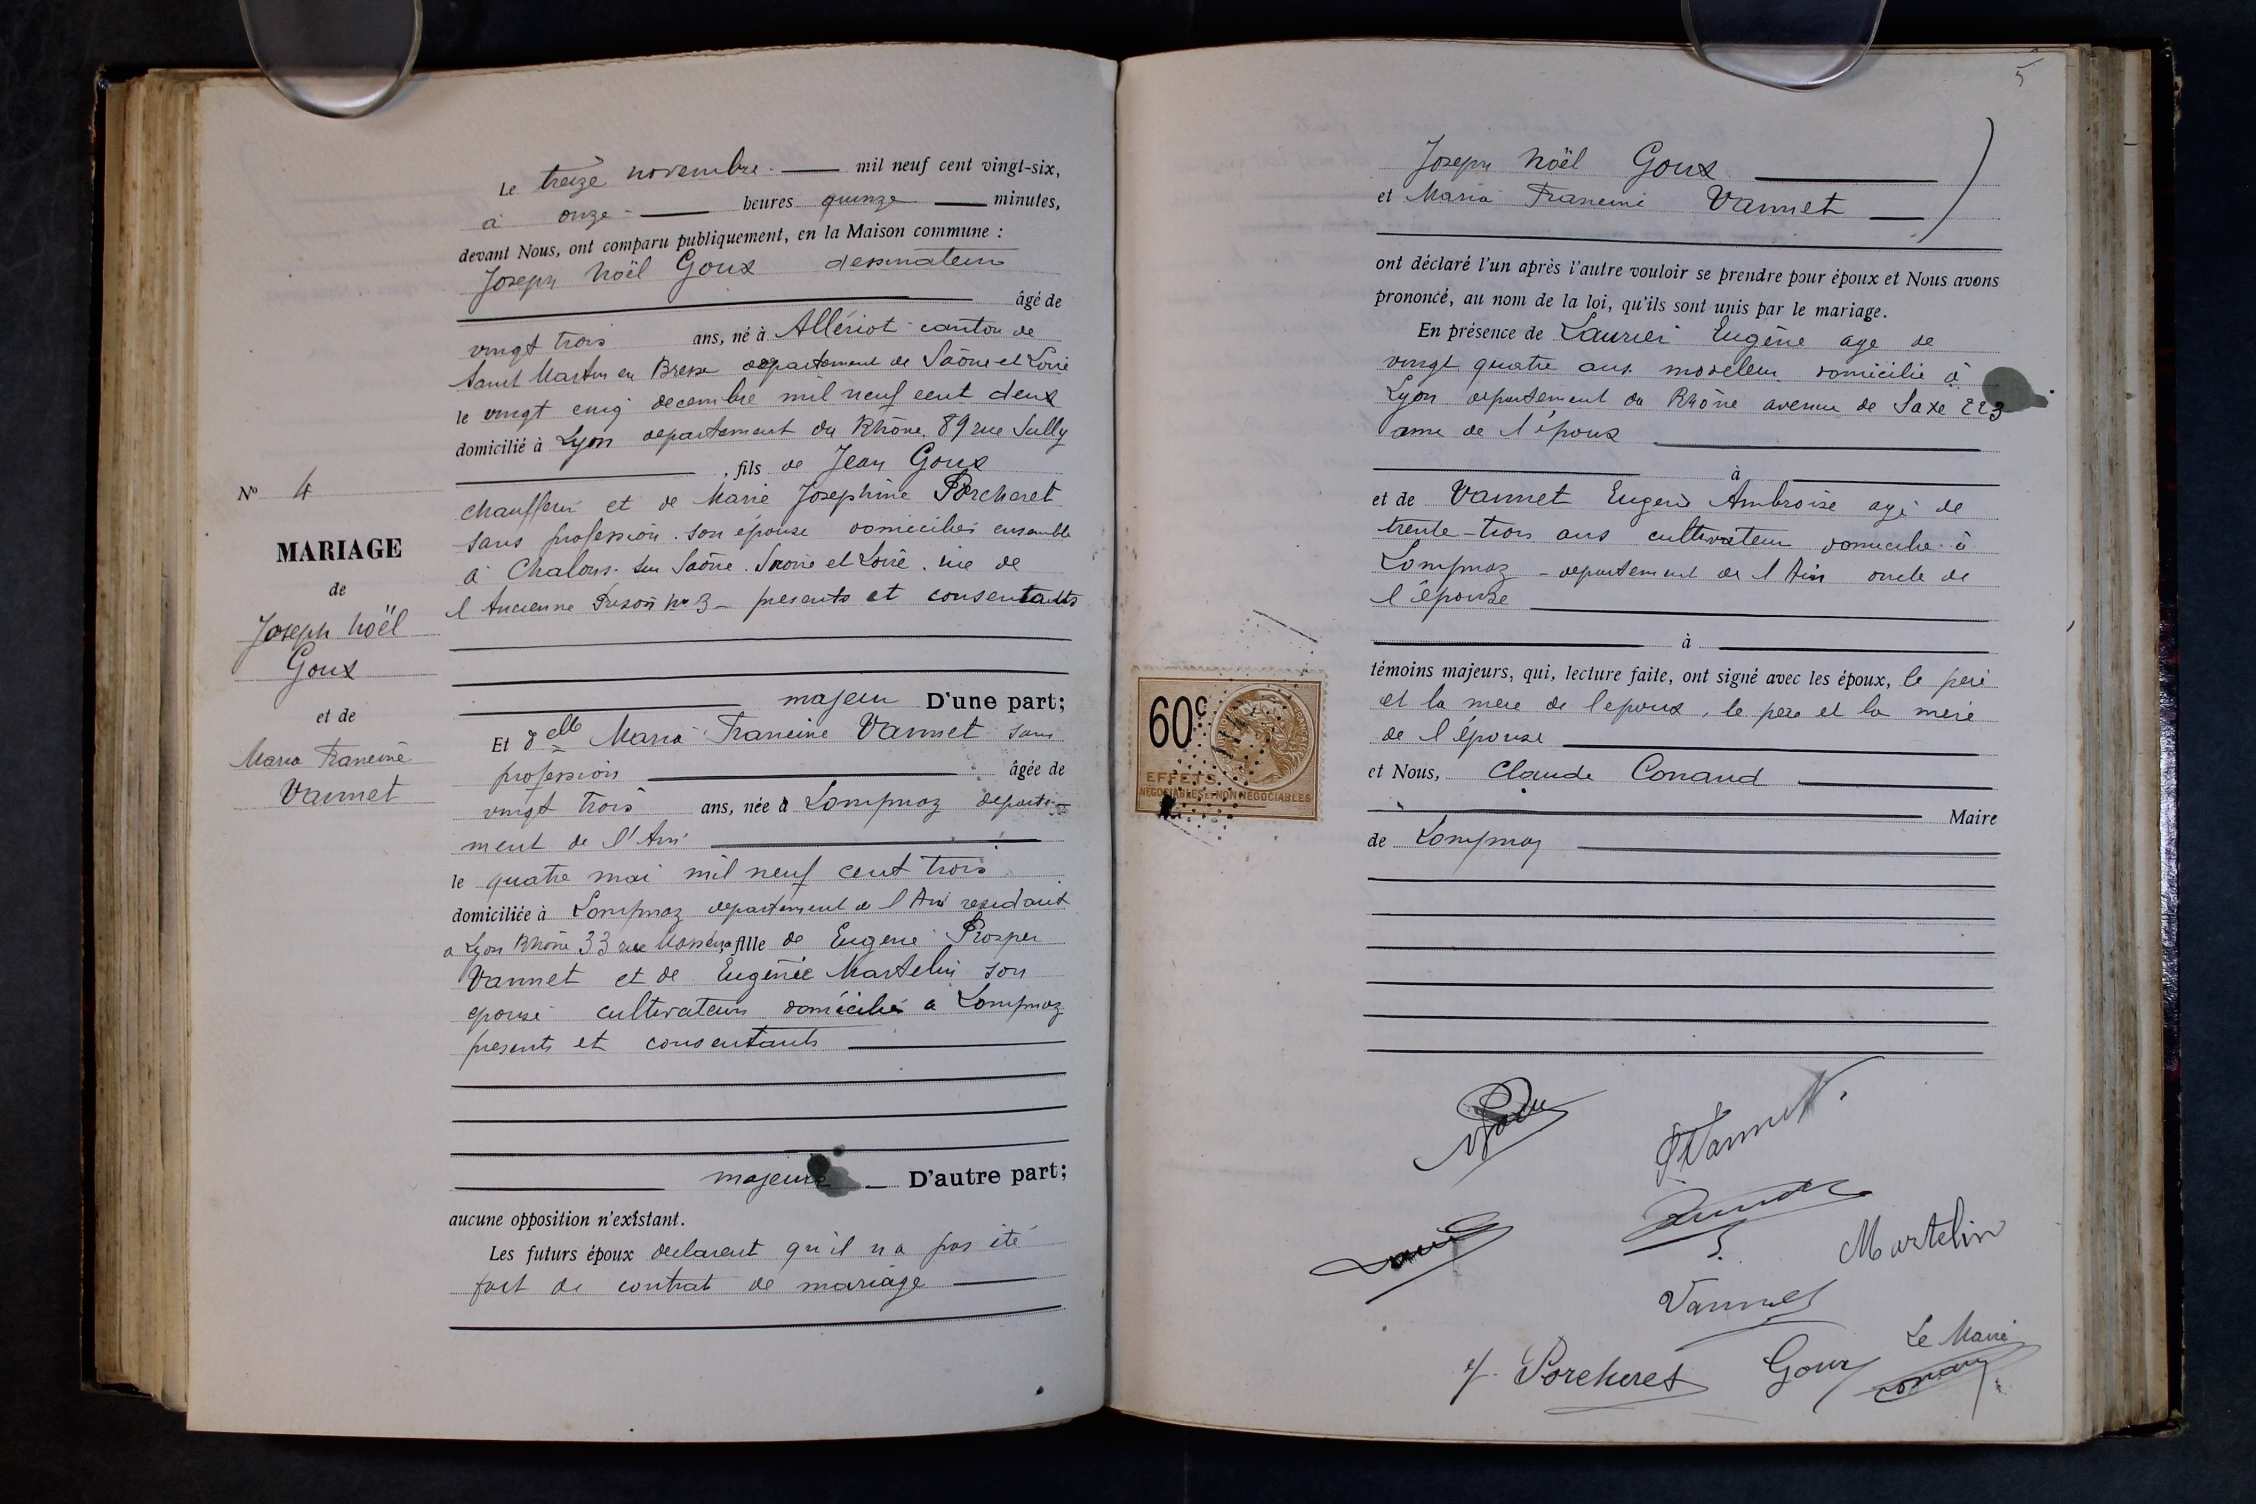 Le treize novembre mil neuf cent vingt-six,
à onze heures quinze minutes,
devant Nous, ont comparu publiquement, en la Maison commune :
Joseph Noël Goux dessinateur
âgé de
vingt trois ans, né à Allériot canton de
Saint Martin en Bresse departement de Saône et Loire
le vingt cinq decembre mil neuf cent deux
domicilié à Lyon departement du Rhône 89 rue Sully
, fils de Jean Goux
chauffeur et de Marie Josephine Porcheret
sans profession son épouse domiciliés ensemble
à Chalons sur Saône Saone et Loire rue de
l'Ancienne Prison No 3 presents et consentants
majeur D'une part;
Et delle Maria Francine Vannet sans
profession âgée de
vingt trois ans, née à Lompnaz departe-
ment de l'Ain
le quatre mai mil neuf cent trois
domiciliée à Lompnaz departement de l'Ain residant
a Lyon Rhône 33 rue Masséna, fille de Eugene Prosper
Vannet et de Eugénie Martelin son
epouse cultivateurs domiciliés a Lompnaz
presents et consentants
majeure D'autre part;
aucune opposition n'existant.
Les futurs époux declarent qu'il n'a pas été
fait de contrat de mariage
No 4
MARIAGE
de
Joseph Noël
Goux
et de
Maria Francine
Vannet
5
Joseph Noël Goux
et Maria Francine Vannet
ont déclaré l'un après l'autre vouloir se prendre pour époux et Nous avons
prononcé, au nom de la loi, qu'ils sont unis par le mariage.
En présence de Eugène age de
vingt quatre ans modeleur domicilié à
Lyon departement du Rhône avenue de Saxe 223
ami de l'époux
à
et de Vannet Eugene Ambroise agé de
trente-trois ans cultivateur domicilié à
Lompnaz departement de l'Ain oncle de
l'épouse
à
témoins majeurs, qui, lecture faite, ont signé avec les époux, le père
et la mere de l'epoux, le pere et la mere
de l'épouse
et Nous, Claude Conand
Maire
de Lompnaz
60c
EFFETS
NÉGOCIABLES ET NON NÉGOCIABLES
Vannet
Martelin
Vannet
Porcheret
Goux
Le Maire
Conand